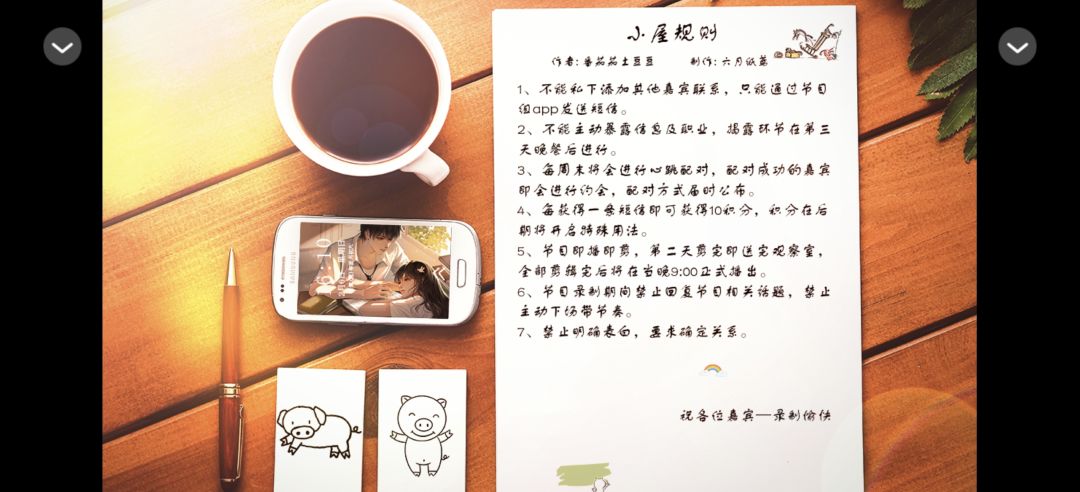 小屋规则
作者:番茄茄土豆豆 制作:六月纸篇
1、不能私下添加其他嘉宾联系,只能通过节目
组app发送短信。
2、不能主动暴露信息及职业,揭露环节在第三
天晚餐后进行。
3、每周末将会进行心跳配对,配对成功的嘉宾
即会进行约会,配对方式届时公布。
4、每获得一条短信即可获得10积分,积分在后
期将开启特殊用法。
5、节目即播即剪,第二天剪完即送完观察室,
全部剪辑完后将在当晚9:00正式播出。
6、节目录制期间禁止回复节目相关话题,禁止
主动下场带节奏。
7、禁止明确表白,要求确定关系。
祝各位嘉宾—录制愉快
SAMSUNG